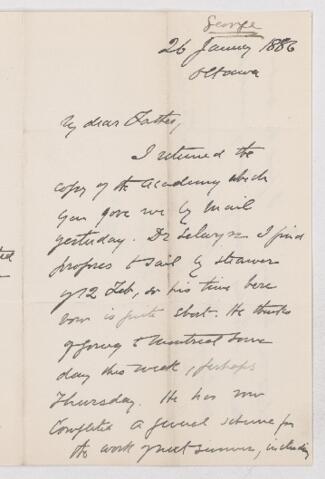 George
26 January 1886
Ottawa
My dear Father,
I returned the
copy of the Academy which
you gave me by mail
yesterday. Dr Selwyn I find
proposes to sail by steamer
of 12 Feb, so his time here
now is quite short. He thinks
of going to Montreal some
day this week, perhaps
Thursday. He has now
completed a general scheme for
the work of next summer, including